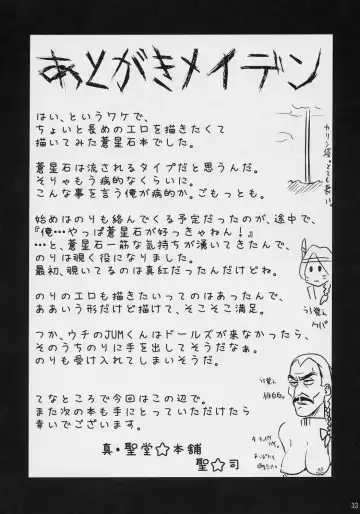 あとがきメイデン
はい、というワケで、
ちょいと長めのエロを描きたくて
描いてみた蒼星石本でした。
蒼星石は流されるタイプだと思うんだ。
そりゃもう病的なくらいに。
こんな事を言う俺が病的か。ごもっとも。
始めはのりも絡んでくる予定だったのが、途中で、
『俺…やっぱ蒼星石が好っきゃねん！』
…と、蒼星石一筋な気持ちが湧いてきたんで、
のりは覗く役になりました。
最初、覗いてるのは真紅だったんだけどね。
のりのエロも描きたいってのはあったんで、
ああいう形だけど描けて、そこそこ満足。
つか、ウチのJUMくんはドールズが来なかったら、
そのうちのりに手を出してそうだなぁ。
のりも受け入れてしまいそうだ。
てなところで今回はこの辺で。
また次の本も手にとっていただけたら
幸いでございます。
真・聖堂☆本舗
聖☆司
カリン塔。とっても長い。
うろ覚え
ウパ
うろ覚え
33